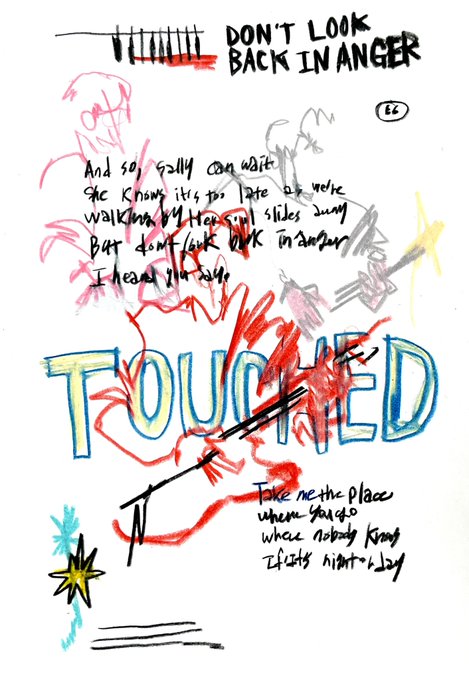 DON'T LOOK
BACK IN ANGER
E6
And so, sally can wait
She knows it's too late as we're
walking by Her soul slides away
But don't look back in anger
I heard you say
TOUCHED
Take me the place
where you go
where nobody knows
If it's night or day